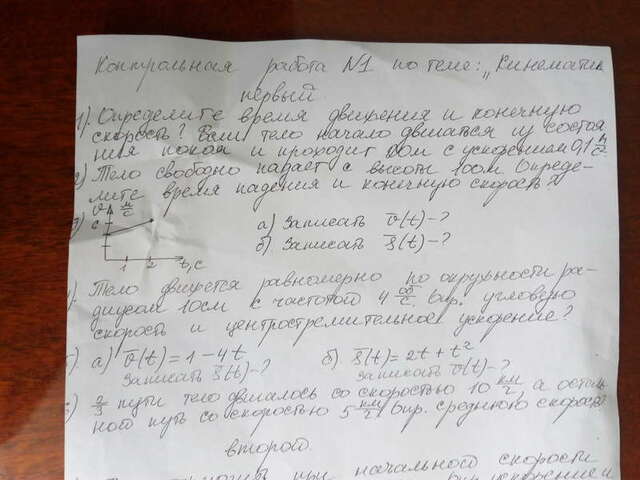 Контрольная работа N1 по теме: „Кинематик
первый.
1). Определите время движения и конечную
скорость? Если тело начало двигаться из состоя
ния покоя и проходит с ускорением 0,1 м/с
2) Тело свободно падает с высоты 100м Опреде-
лите время падения и конечную скорость?
3) v м/с
а) Записать v(t)-?
б) Записать S(t)-?
1 2 t,c
Тело движется равномерно по окружности ра-
диусом 10см с частотой 4 об/с. Опр. угловую
скорость и центростремительное ускорение?
а) v(t) = 1 - 4t б) S(t) = 2t + t²
Записать S(t)-? Записать v(t)-?
пути тело двигалось со скоростью 10 км/ч, а осталь
ной путь со скоростью 5 км/ч. Опр. среднюю скорость
второй.
при начальной скорости